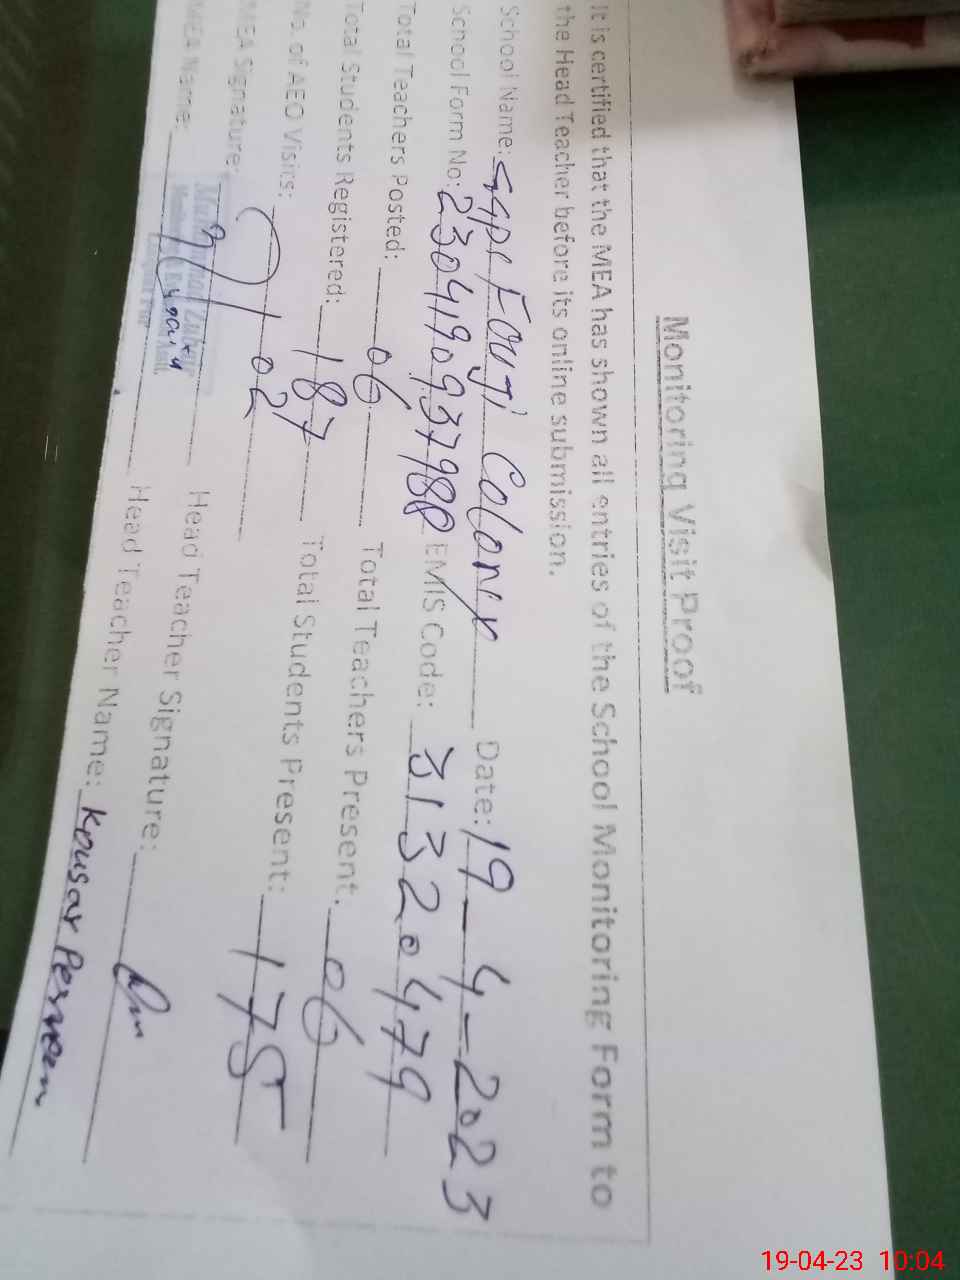 Monitoring Visit Proof
It is certified that the MEA has shown all entries of the School Monitoring Form to
the Head Teacher before its online submission.
School Name: GGPS Fouji Colony Date: 19-4-2023
School Form No: 230419093798 EMIS Code: 31320479
Total Teachers Posted: 06 Total Teachers Present: 06
Total Students Registered: 187 Total Students Present: 175
No. of AEO Visits: 02
MEA Signature: Head Teacher Signature:
MEA Name: Head Teacher Name: Kousar Perveen
19-04-23 10:04